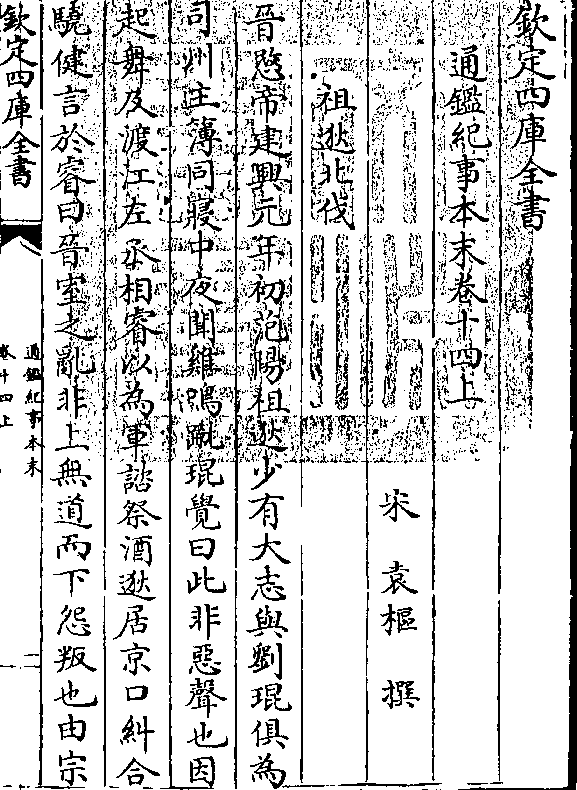 欽定四庫全書
通鑑紀事本末卷十四上
宋 袁樞 撰
祖逖北伐
晉愍帝建興元年初范陽祖逖少有大志與劉琨俱為
司州主薄同寢中夜聞雞鳴蹴琨覺曰此非惡聲也因
起舞及渡江左丞相睿以為軍諮祭酒逖居京口糾合
驍健言於睿曰晉室之亂非上無道而下怨叛也由宗
欽定四庫全書
通鑑紀事本末
卷十四上
一